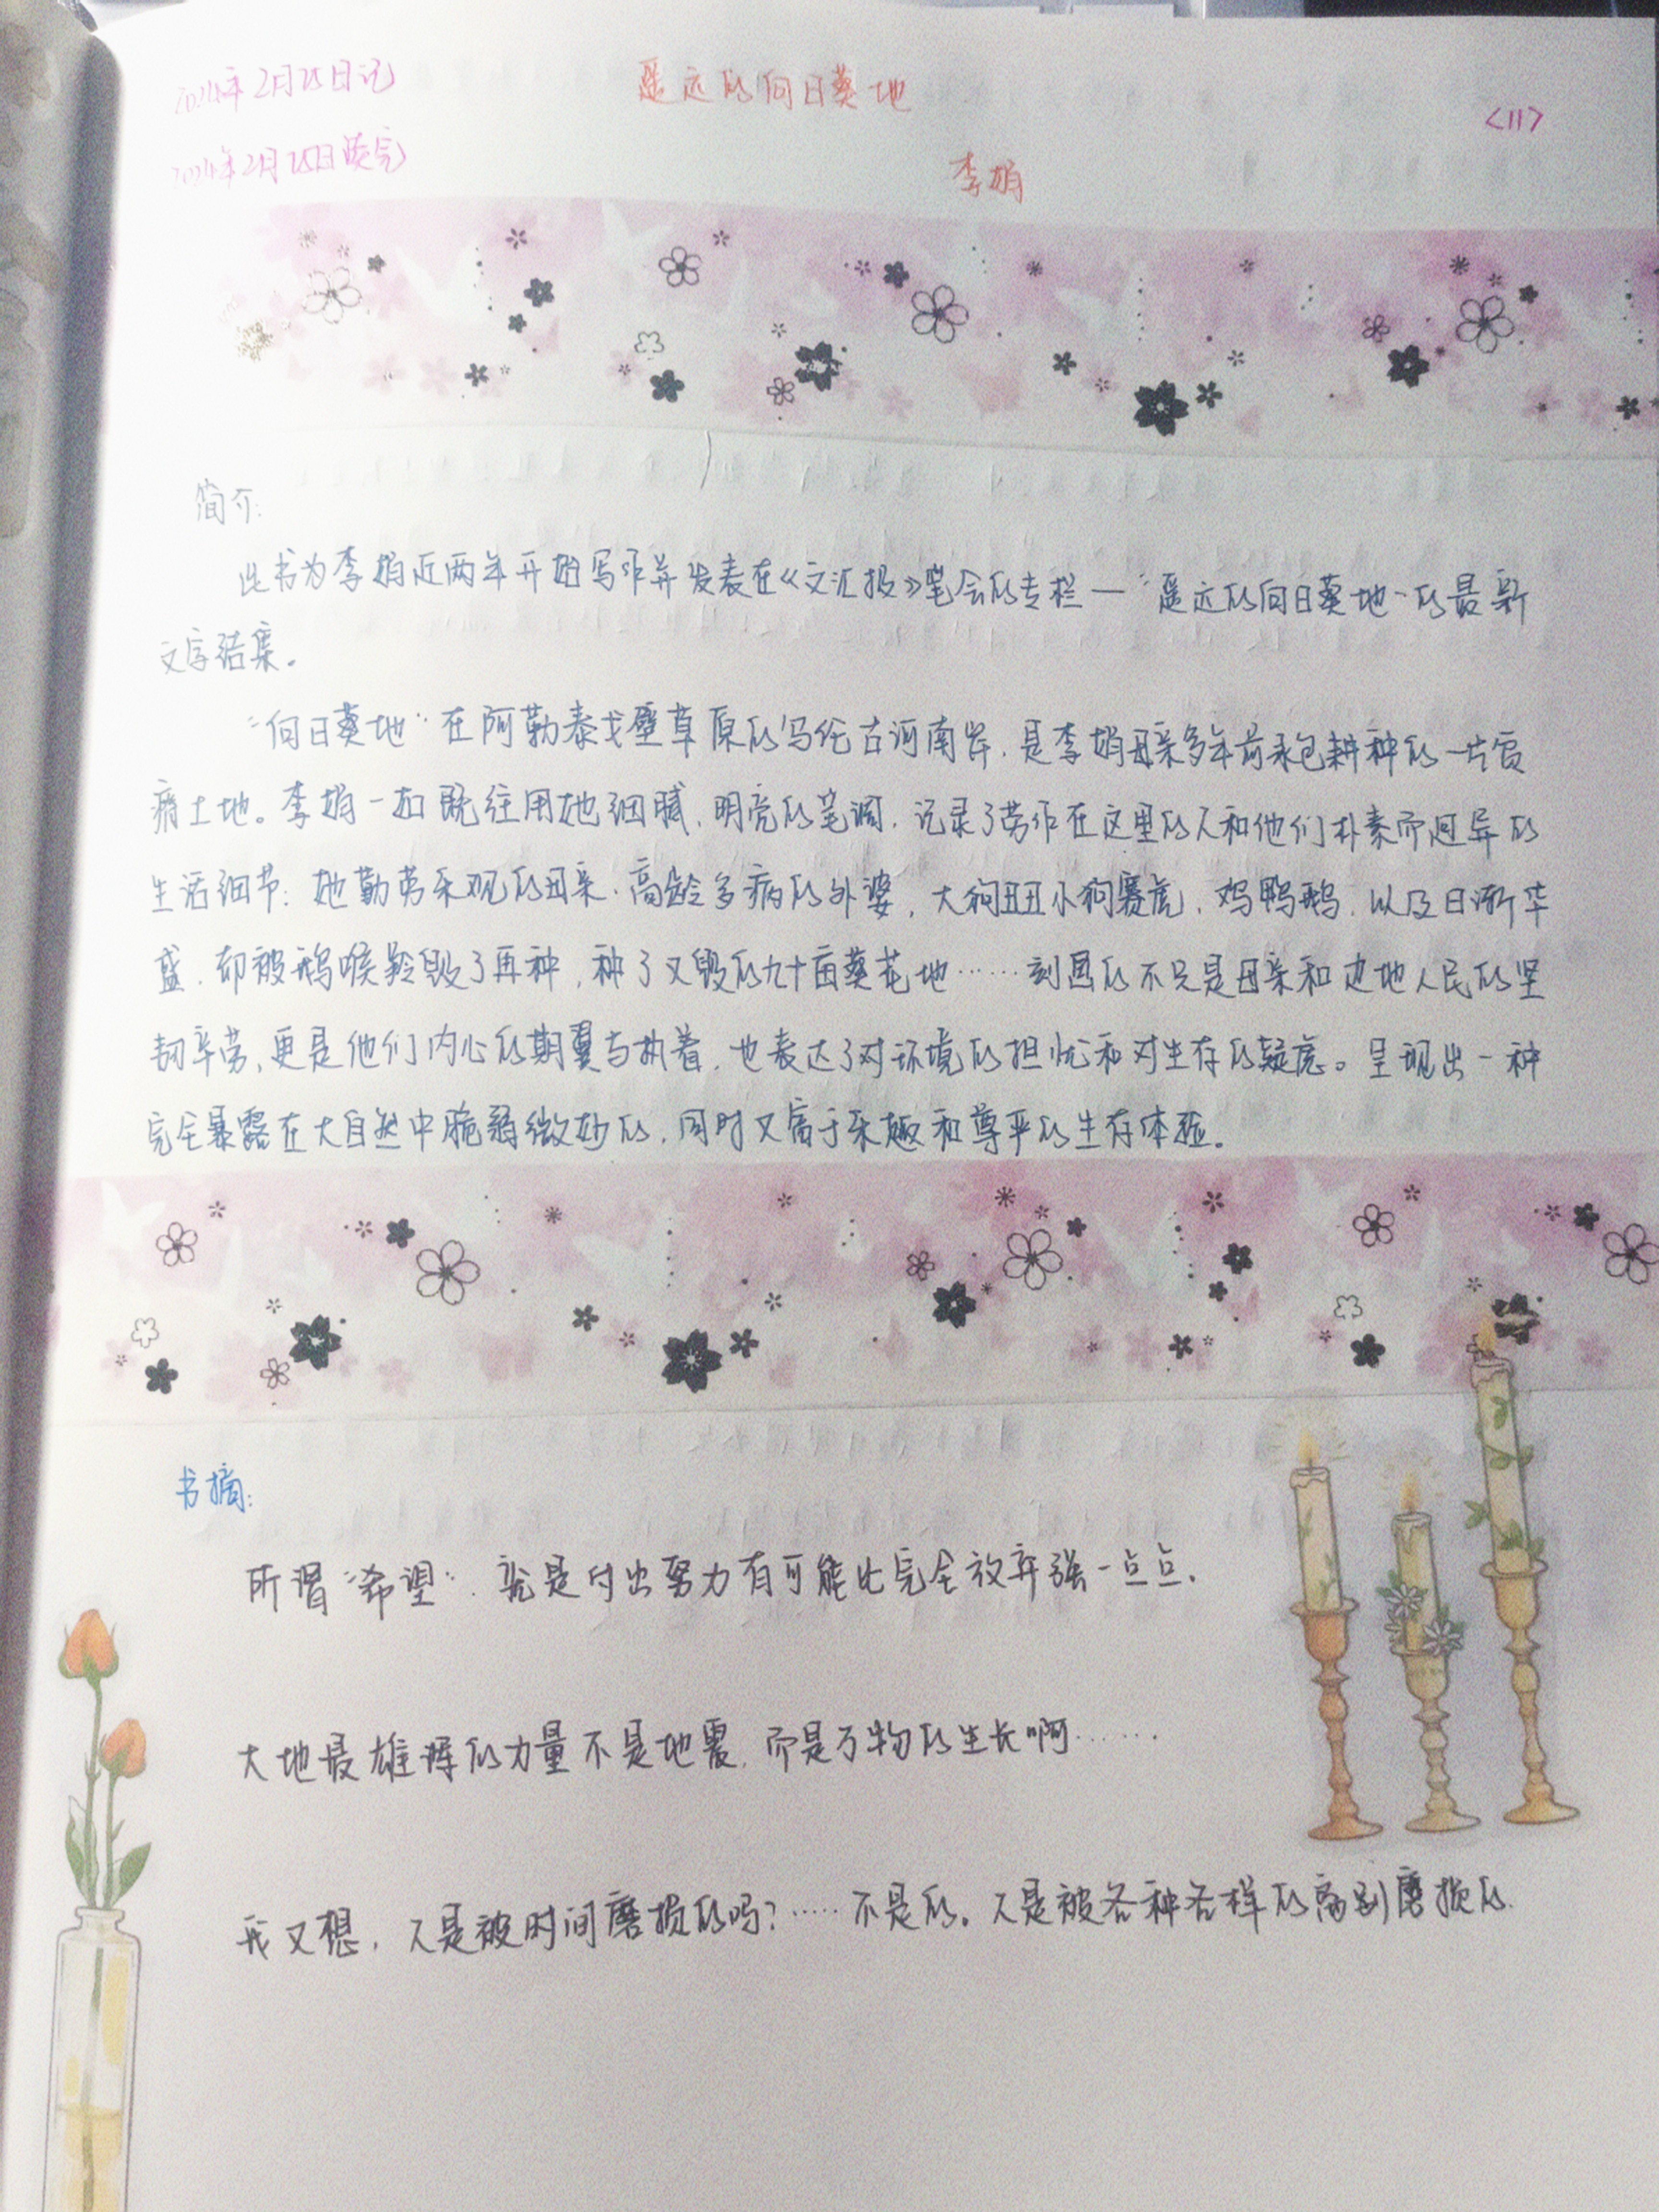 2024年2月25日记
遥远的向日葵地
<11>
2024年2月25日读完
李娟
简介:
此书为李娟近两年开始写作并发表在《文汇报》笔会的专栏—“遥远的向日葵地”的最新
文字结集。
“向日葵地”在阿勒泰戈壁草原的乌伦古河南岸,是李娟母亲多年前承包耕种的一片贫
瘠土地。李娟一如既往用她细腻、明亮的笔调,记录了劳作在这里的人和他们朴素而迥异的
生活细节:她勤劳乐观的母亲、高龄多病的外婆,大狗丑丑小狗赛虎,鸡鸭鹅,以及日渐华
盛,却被鹅喉羚毁了再种,种了又毁的九十亩葵花地……刻画的不只是母亲和边地人民的坚
韧辛劳,更是他们内心的期翼与执着,也表达了对环境的担忧和对生存的疑虑。呈现出一种
完全暴露在大自然中脆弱微妙的,同时又富于乐趣和尊严的生存体验。
书摘:
所谓“希望”,就是付出努力有可能比完全放弃强一点点.
大地最雄浑的力量不是地震,而是万物的生长啊……
我又想,人是被时间磨损的吗?……不是的。人是被各种各样的离别磨损的.